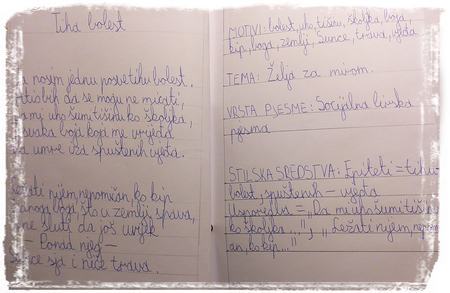 Tiha bolest
a nosim jednu posvetihu bolest.
da se mogu ne micati,
a mi uho šumi tišinu ko školjka,
svaka boja koja me vrijeđa
da umre iza spuštenih vjeđa.
Ležati nijem, nepomičan ko kip
boga, što u zemlji spava,
ne sluti da još uvijek
— Ponda njeg —
Sunce sja i niče trava.
MOTIVI: bolest, uho, tišinu, školjka, boja,
kip, boga, zemlji, Sunce, trava, vjeđa
TEMA: Želja za mirom.
VRSTA PJESME: Socijalna lirska
pjesma
STILSKA SREDSTVA: Epiteti = tihu
bolest, spuštenih – vjeđa
Usporedba = „Da mi uho šumi tišinu
ko školjka...", „Ležati nijem, nepomič
an, ko kip..."